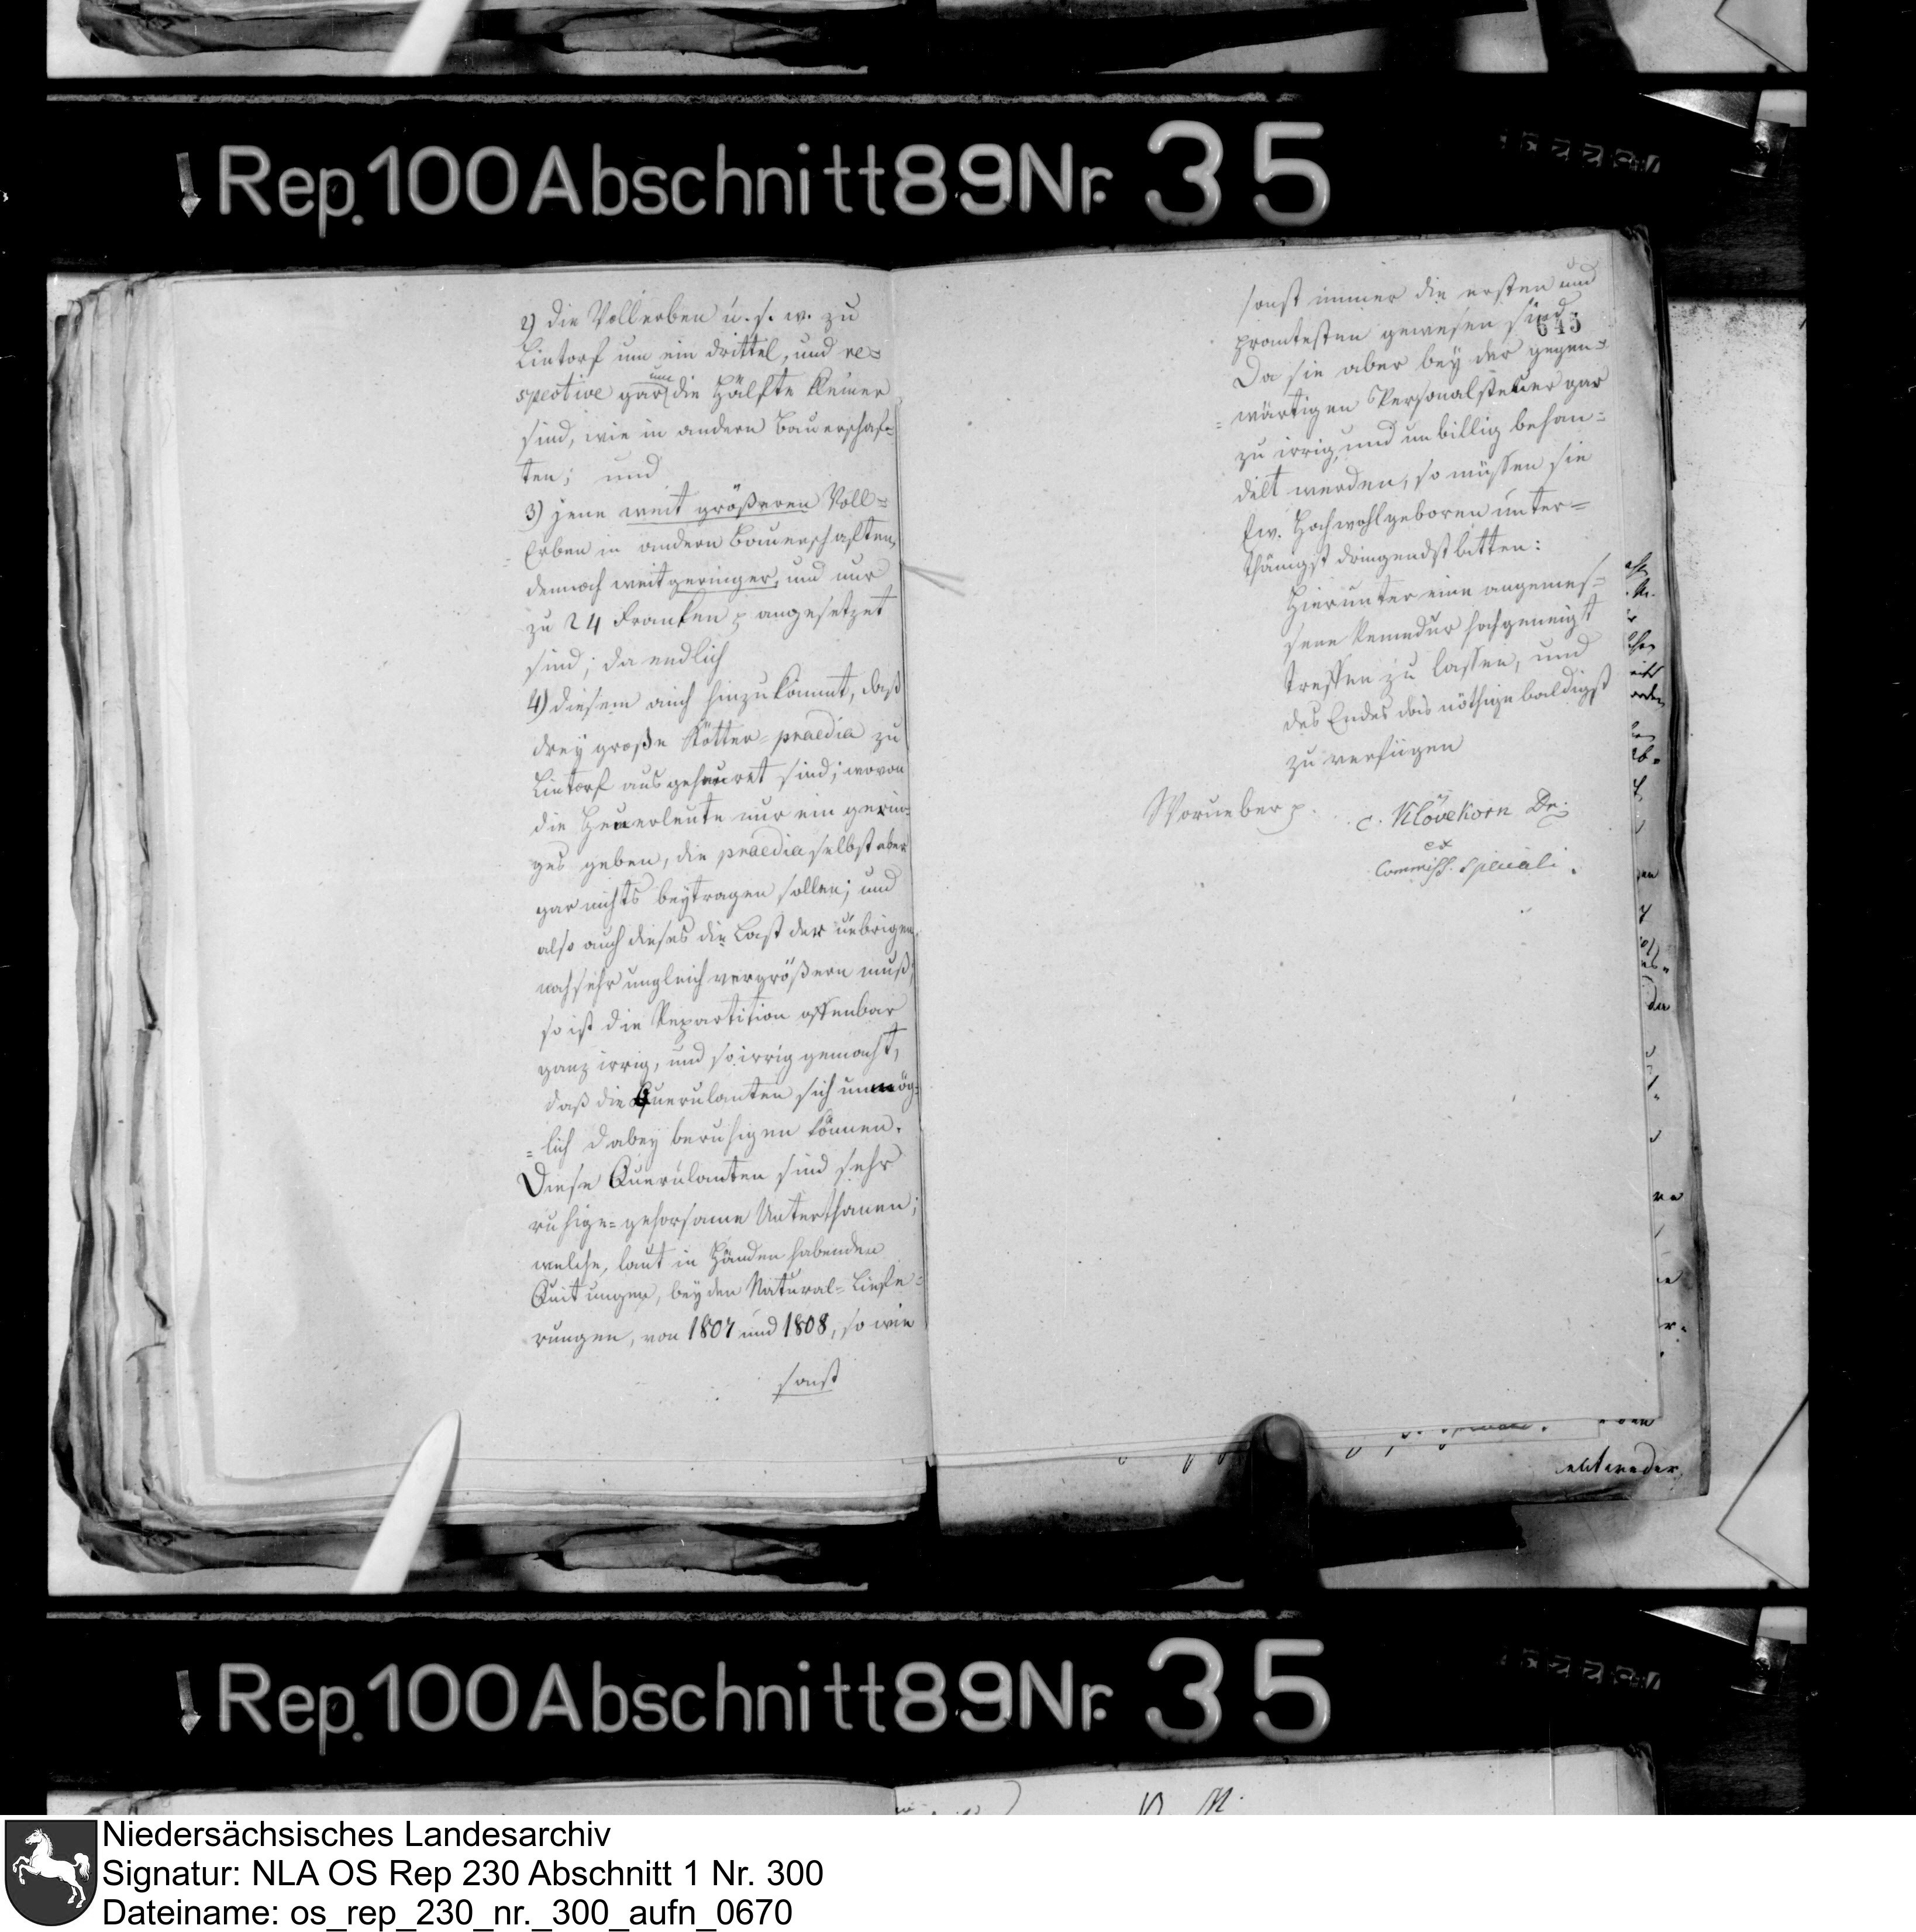 Rep. 100 Abschnitt 89 Nr. 35
2) die Vollerben u. s. w. zu
Lintorf um ein drittel, und re=
spective gar um die Hälfte kleiner
sind, wie in andern Bauerschaf=
ten; und
3) jene weit größeren Voll=
Erben in andern Bauerschaften,
dennoch weit geringer, und nur
zu 24 Franken p angesetzet
sind; da endlich
4) diesem auch hinzukömmt, daß
drey große Kötter=praedia zu
Lintorf ausgeheuret sind; wovon
die Heuerleute nur ein gerin=
ges geben, die praedia selbst aber
gar nichts beytragen sollen; und
also auch dieses die Last der uebrigen
noch sehr ungleich vergrößern muß;
so ist die Repartition offenbar
ganz irrig, und so irrig gemacht,
daß die Querulanten sich unmög=
=lich dabey beruhigen können.
Diese Querulanten sind sehr
ruhige= gehorsame Unterthanen;
welche, laut in Händen habenden
Quitungen, bey den Natural=Liefe=
rungen, von 1807 und 1808, so wie
sonst
sonst immer die ersten und
promtesten gewesen sind.
645
Da sie aber bey der gegen=
=wärtigen Personalsteuer gar
zu irrig, und unbillig behan=
delt werden, so müssen sie
Ew. Hochwohlgeboren unter=
thänigst dringendst bitten:
Hierunter eine angemes=
sene Remedur hochgeneigt
treffen zu lassen, und
des Endes das nöthige baldigst
zu verfügen
Worueber p. c. Klövekorn Dr.
ex
Commiss. speciali.
entweder
Rep. 100 Abschnitt 89 Nr. 35
Niedersächsisches Landesarchiv
Signatur: NLA OS Rep 230 Abschnitt 1 Nr. 300
Dateiname: os_rep_230_nr._300_aufn_0670